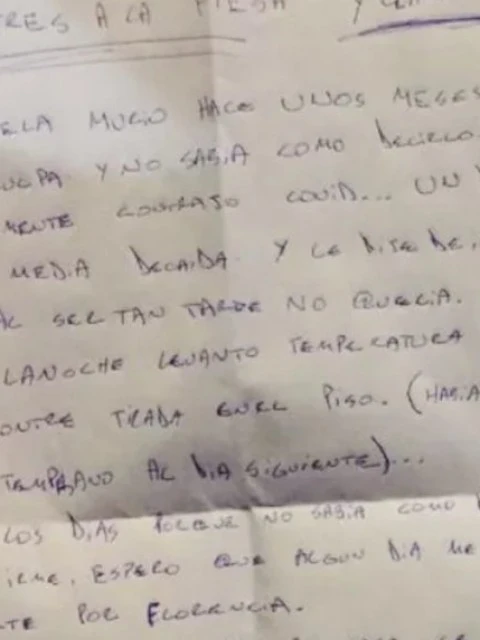 A LA
ELA MURIO HACE UNOS MESES
Y NO SABIA COMO DECIRLO
MENTE CONTRAJO COVID... UN
MEDIA DECAIDA. Y LE DIJE DE
AL SER TAN TARDE NO QUERIA.
LANOCHE LEVANTO TEMPERATURA
ONTRE TIRADA EN EL PISO. (HABIA
TEMPRANO AL DIA SIGUIENTE)...
LOS DIAS PORQUE NO SABIA COMO
IRME, ESPERO QUE ALGUN DIA ME
TE POR FLORENCIA.